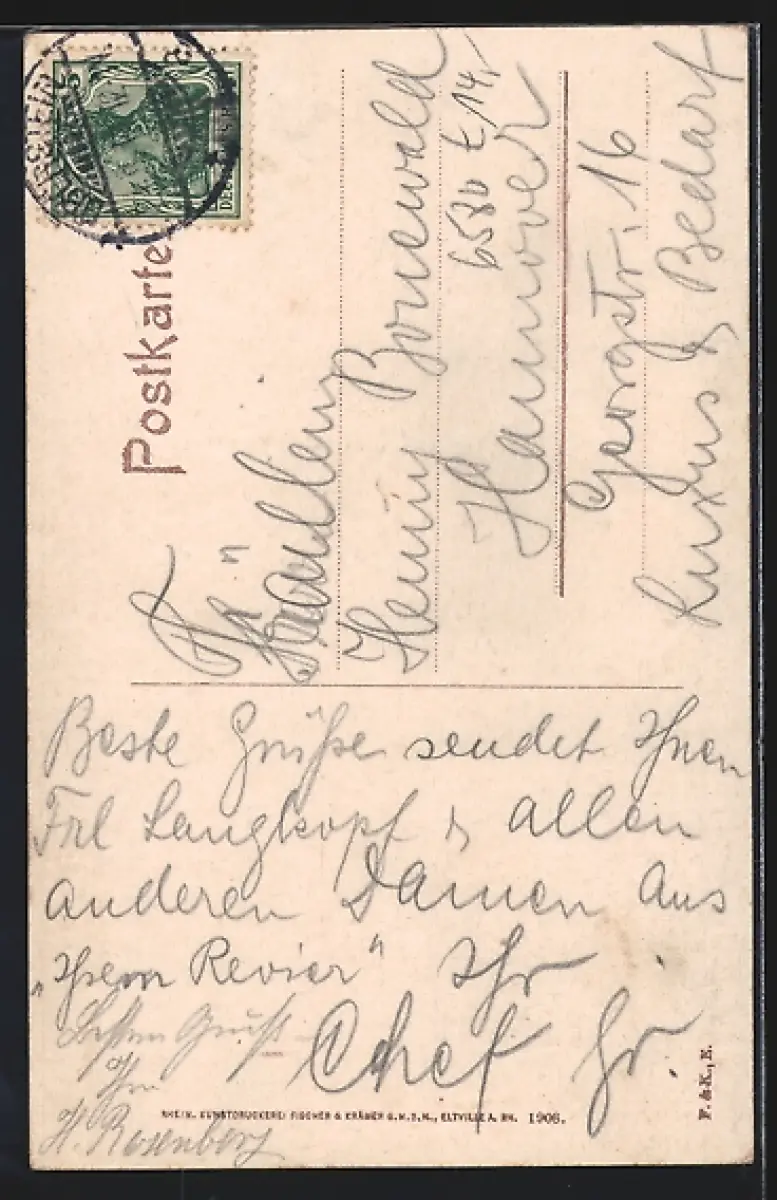 Postkarte
Fräulein
Henny Bonewald
6586 t 14,
Hannover
Georgstr. 16
Luxus & Bedarf
Beste Grüße sendet Ihnen
Frl Langkopf & allen
anderen Damen aus
„Ihrem Revier" Ihr
Chef Gr.
Besten Gruß
Ihr
H. Rosenberg
RHEIN. KUNSTDRUCKEREI FISCHER & KRÄMER G.M.B.H., ELTVILLE A. RH. 1906.
F. & K., E.